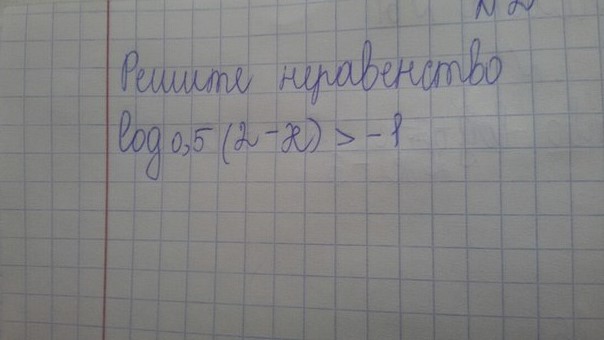 N2
Решите неравенство
log 0,5 (2-x) > -1